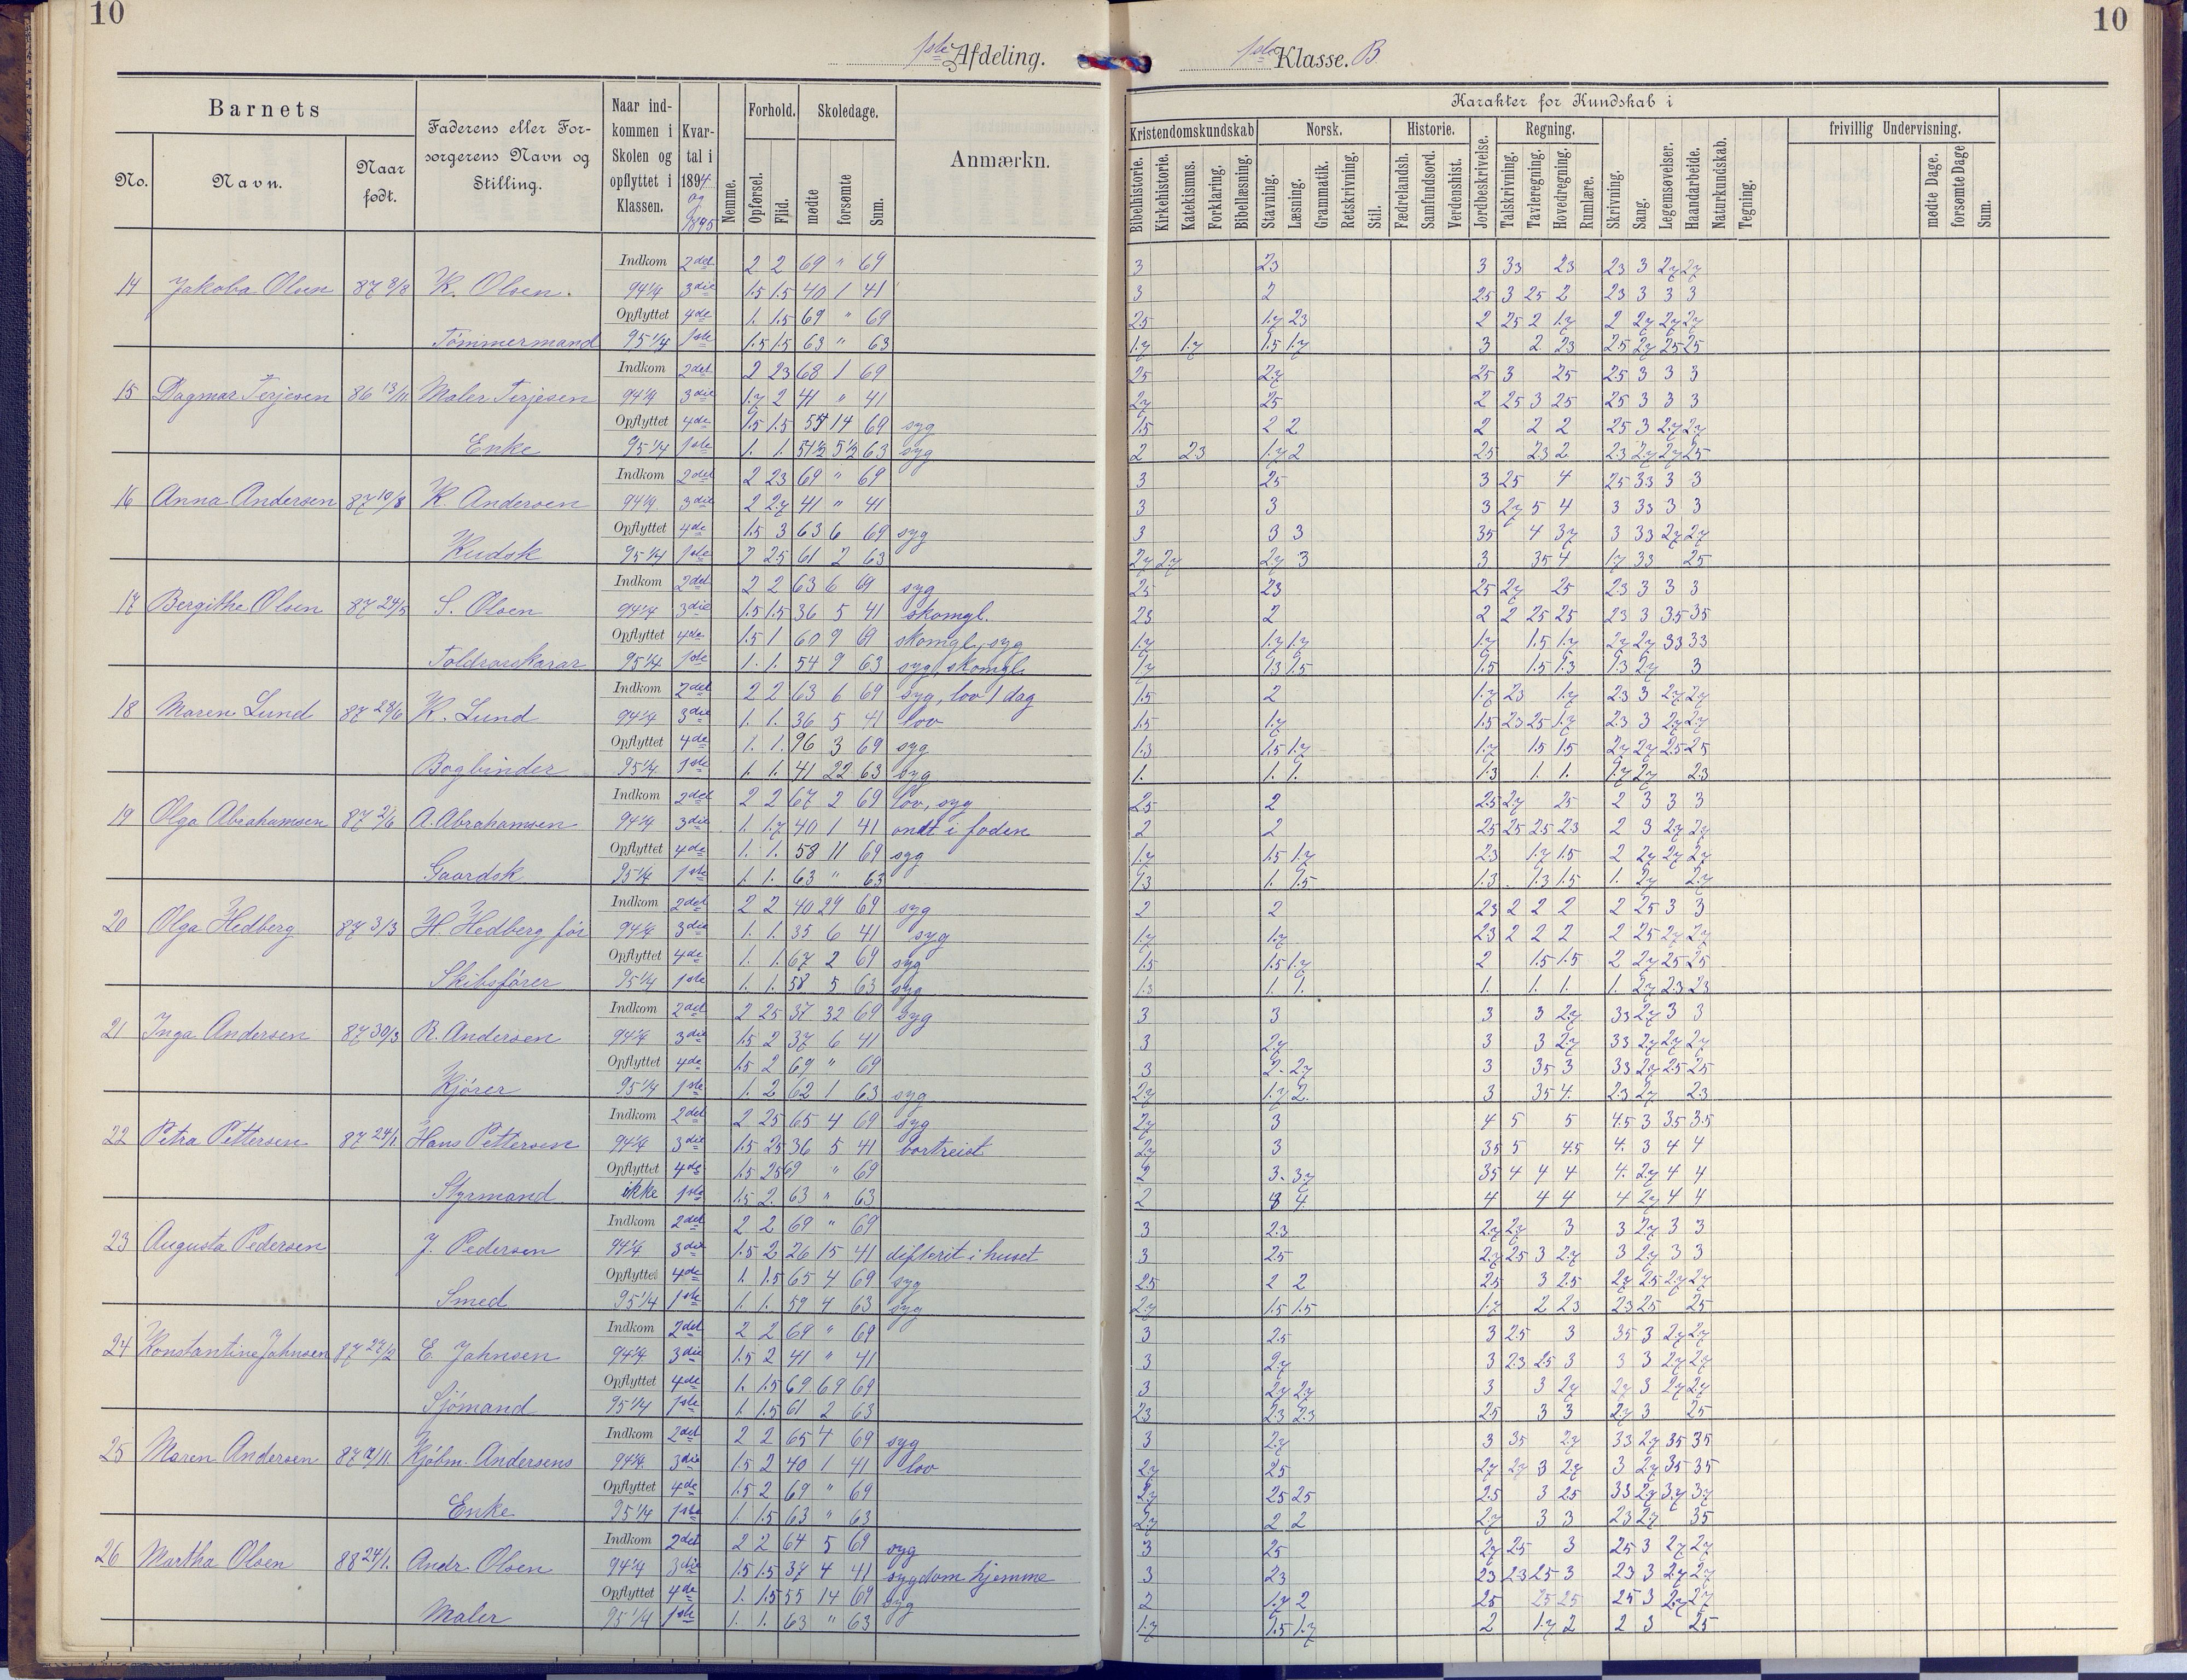 10
1ste Afdeling.
1ste Klasse. B
10
Barnets
Faderens eller Forsorgerens Navn og Stilling.
Naar indkommen i Skolen og opflyttet i Klassen.
Kvartal i 1894 og 1895
Nemme.
Forhold.
Skoledage.
Anmærkn.
No.
Navn.
Naar født.
Opførsel.
Flid.
mødte
forsømte
Sum.
Karakter for Kundskab i
Kristendomskundskab
Norsk.
Historie.
Jordbeskrivelse.
Regning.
frivillig Undervisning.
Bibelhistorie.
Kirkehistorie.
Katekismus.
Forklaring.
Bibellæsning.
Stavning.
Læsning.
Grammatik.
Retskrivning.
Stil.
Fædrelandsh.
Samfundsord.
Verdenshist.
Talskrivning.
Tavleregning.
Hovedregning.
Rumlære.
Skrivning.
Sang.
Legemsøvelser.
Haandarbeide.
Naturkundskab.
Tegning.
mødte Dage.
forsømte Dage
Sum.
Indkom 2det 2 2 69 " 69 3 23 3 33 23 23 3 27 27
14 Jakoba Olsen 87 8/8 K. Olsen. 94 1/4 3die 1.5 1.5 40 1 41 3 2 25 3 25 2 23 3 3 3
Opflyttet 4de 1. 1.5 69 " 69 25 1.7 23 2 25 2 1.7 2 27 27 27
Tømmermand 95 1/4 1ste 1.5 1.5 63 " 63 1.7 1.7 1.5 1.7 3 2 23 25 27 25 25
Indkom 2det 2 23 68 1 69 25 27 25 3 25 25 3 3 3
15 Dagmar Terjesen 86 13/11 Maler Terjesen 94 1/4 3die 1.7 2 41 " 41 27 25 2 25 3 25 25 3 3 3
Opflyttet 4de 1.5 1.5 55 14 69 syg 1.5 2 2 2 2 2 25 3 27 27
Enke 95 1/4 1ste 1. 1. 57 1/2 5 1/2 63 syg 2 23 1.7 2 25 23 2 23 27 27 25
Indkom 2det 2 23 69 " 69 3 25 3 25 4 25 33 3 3
16 Anna Andersen 87 10/8 K. Andersen 94 1/4 3die 2 27 41 " 41 3 3 3 27 5 4 3 33 3 3
Opflyttet 4de 1.5 3 63 6 69 syg 3 3 3 35 4 37 3 33 27 27
Kudsk 95 1/4 1ste 2 25 61 2 63 27 27 27 3 3 35 4 17 33 25
Indkom 2det 2 2 63 6 69 syg 25 23 25 27 25 23 3 3 3
17 Bergithe Olsen 87 24/5 S. Olsen 94 1/4 3die 1.5 1.5 36 5 41 skomgl. 23 2 2 2 25 25 23 3 35 35
Opflyttet 4de 1.5 1 60 9 69 skomgl, syg 1.7 1.7 1.7 1.7 1.5 1.7 27 27 33 33
95 1/4 1ste 1. 1. 54 9 63 syg, skomgl. 1.7 1.3 1.5 1.5 1.5 1.3 1.3 27 3
Indkom 2det 2 2 63 6 69 syg, lov 1 dag 1.5 2 1.7 23 1.7 23 3 27 27
18 Maren Lund 87 28/6 K. Lund 94 1/4 3die 1. 1. 36 5 41 lov 1.5 1.7 1.5 23 25 1.7 23 3 27 27
Opflyttet 4de 1. 1. 96 3 69 syg 1.3 1.5 1.7 1.7 1.5 1.5 27 27 25 25
Bogbinder 95 1/4 1ste 1. 1. 41 22 63 syg 1. 1. 1. 1.3 1. 1. 1.7 27 23
Indkom 2det 2 2 67 2 69 lov, syg 25 2 25 27 25 2 3 3 3
19 Olga Abrahamsen 87 2/6 A. Abrahamsen 94 1/4 3die 1. 1.7 40 1 41 ondt i foden 2 2 25 25 25 23 2 3 27 27
Opflyttet 4de 1. 1. 58 11 69 syg 1.7 1.5 1.7 23 1.7 1.5 2 27 27 27
Gaardsk 95 1/4 1ste 1. 1. 63 " 63 1.3 1. 1.5 1.3 1.3 1.5 1. 27 27
Indkom 2det 2 2 40 29 69 syg 2 2 23 2 2 2 2 25 3 3
20 Olga Hedberg 87 3/3 H. Hedberg før 94 1/4 3die 1. 1. 35 6 41 syg 1.7 1.7 23 2 2 2 2 25 27 27
Opflyttet 4de 1. 1. 67 2 69 syg 1.5 1.5 1.7 2 1.5 1.5 2 27 25 25
Skibsfører 95 1/4 1ste 1. 1. 58 5 63 syg 1.3 1. 1. 1. 1. 1. 1. 27 23 23
Indkom 2det 2 25 37 32 69 syg 3 3 3 3 27 33 27 3 3
21 Inga Andersen 87 30/3 R. Andersen 94 1/4 3die 1.5 2 37 6 41 3 27 3 3 27 33 27 27 27
Opflyttet 4de 1.5 2 69 " 69 3 2. 27 3 35 3 33 27 25 25
Kjører 95 1/4 1ste 1. 2 62 1 63 syg 27 1.7 2. 3 35 4. 23 27 23
Indkom 2det 2 25 65 4 69 syg 27 3 4 5 5 4.5 3 35 3.5
22 Petra Pettersen 87 24/1. Hans Pettersen 94 1/4 3die 1.5 25 36 5 41 bortreist 27 3 35 5 4.5 4. 3 4 4
Opflyttet 4de 1.5 25 69 " 69 2 3. 37 35 4 4 4 4. 27 4 4
Styrmand ikke 1ste 1.5 2. 63 " 63 2 3 4. 4 4 4 4 27 4 4
Indkom 2det 2 2 69 " 69 3 2.3 27 27 3 3 27 3 3
23 Augusta Pedersen J. Pedersen 94 1/4 3die 1.5 2 26 15 41 difterit i huset 3 25 27 25 3 27 3 27 3 3
Opflyttet 4de 1. 1.5 65 4 69 syg 25 2 2 25 3 2.5 27 25 27 27
Smed 95 1/4 1ste 1. 1. 59 4 63 syg 27 1.5 1.5 1.7 2 23 23 25 25
Indkom 2det 2 2 69 " 69 3 2.5 3 25 3 35 3 27 27
24 Konstantine Johnsen 87 27/2 E. Johnsen 94 1/4 3die 1.5 2 41 " 41 3 27 3 23 25 3 3 3 27 27
Opflyttet 4de 1. 1.5 69 69 69 3 27 27 3 3 27 27 3 27 27
Sjømand 95 1/4 1ste 1. 1.5 61 2 63 23 23 23 25 3 3 27 3 25
Indkom 2det 2 2 65 4 69 syg 3 27 3 35 27 33 27 35 35
25 Maren Andersen Kjøbm. Andersens 94 1/4 3die 1.5 2 40 1 41 lov 27 25 27 27 3 27 3 27 35 35
Opflyttet 4de 1.5 2 69 " 69 27 25 25 25 3 25 33 27 37 37
Enke 95 1/4 1ste 1. 1.5 63 " 63 27 2 2 27 3 3 23 27 35
Indkom 2det 2 2 64 5 69 syg 3 25 27 25 3 25 3 27 27
26 Martha Olsen 88 24/1. Andr. Olsen 94 1/4 3die 1.5 1.5 37 4 41 sygdom hjemme 3 23 23 23 25 3 23 3 27 27
Opflyttet 4de 1. 1.5 55 14 69 syg 2 1.7 2 25 25 25 25 3 27 27
Maler 95 1/4 1ste 1. 1. 63 " 63 1.7 1.5 1.7 2 1.7 2 2 3 25